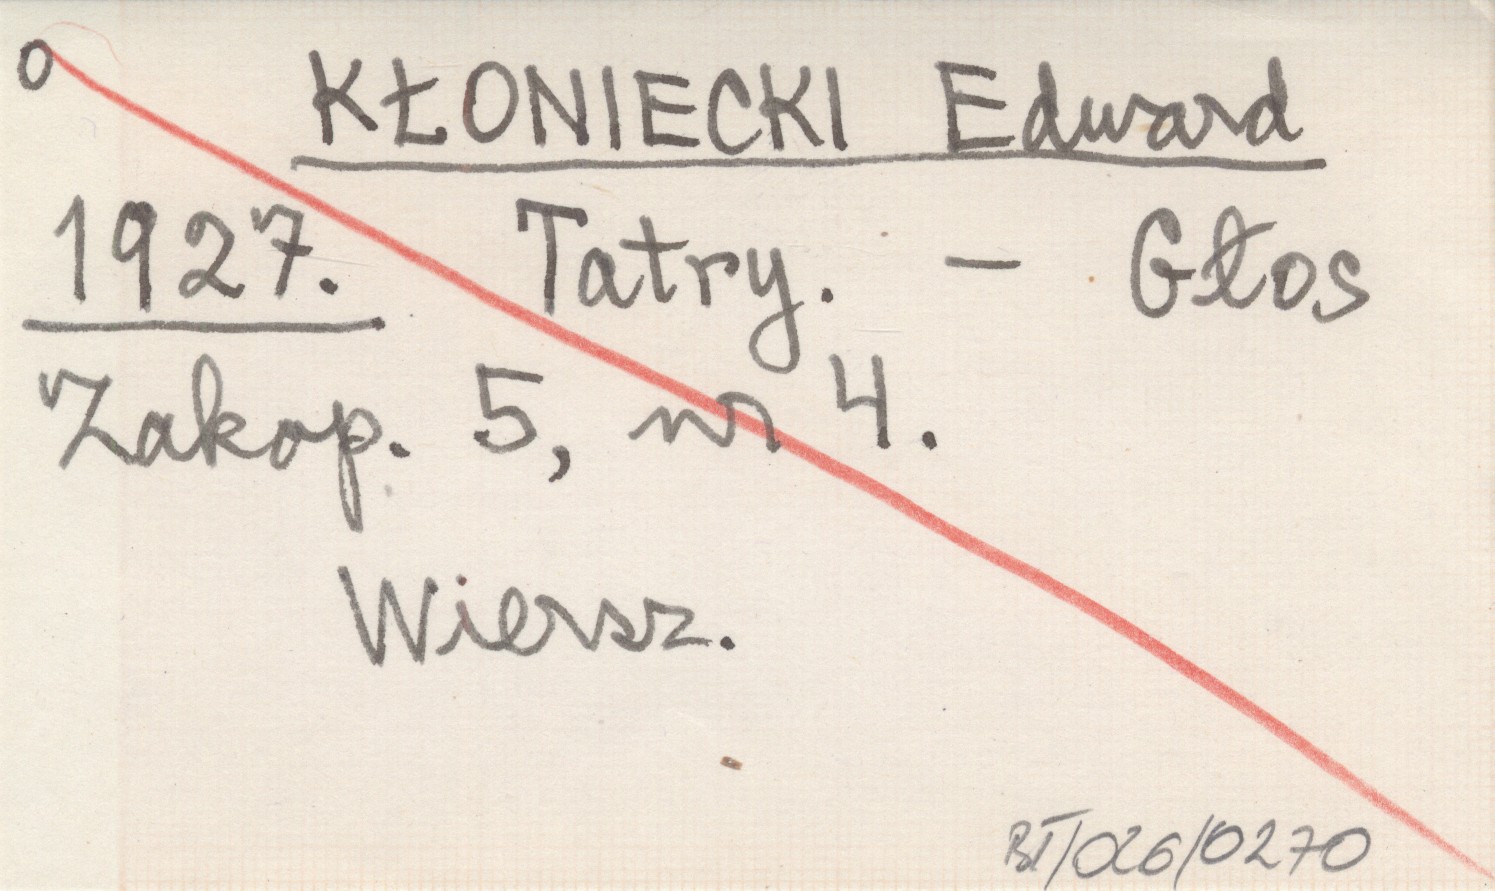 o KŁONIECKI Edward
1927. Tatry. — Głos
Zakop. 5, nr 4.
Wiersz.
BT/026/0270